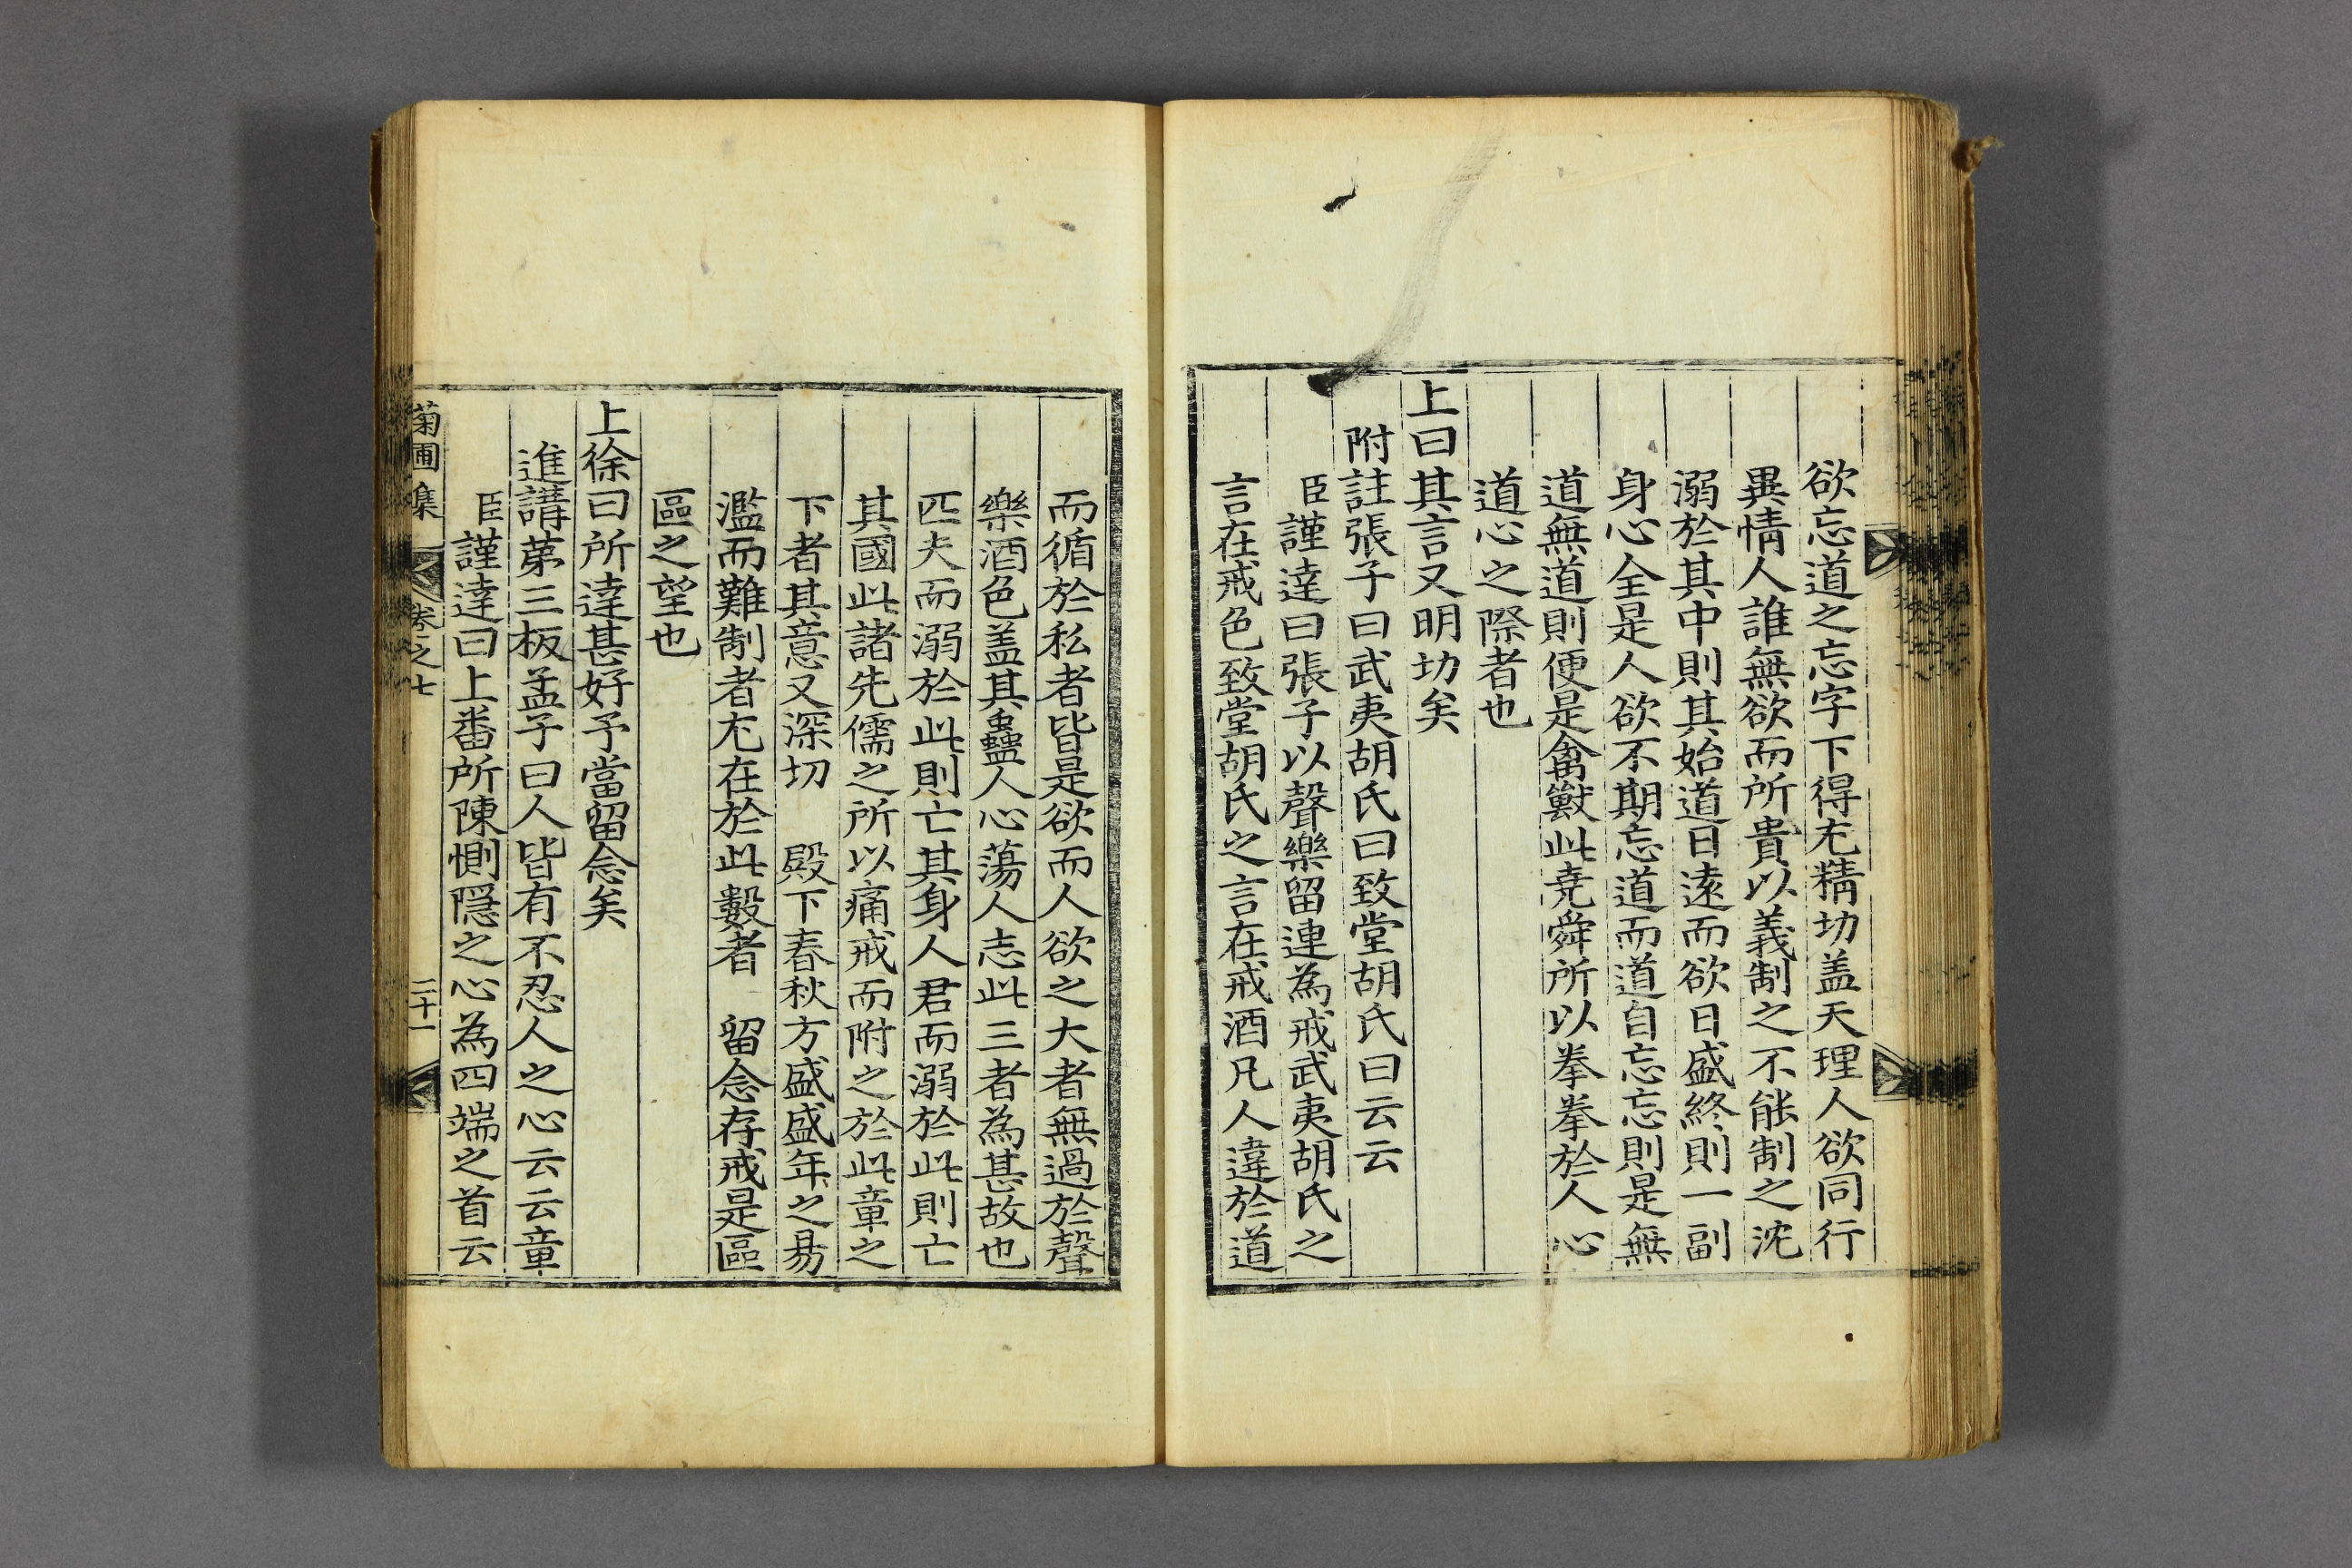 欲忘道之忘字下得尤精切盖天理人欲同行
異情人誰無欲而所貴以義制之不能制之沈
溺於其中則其始道日遠而欲日盛終則一副
身心全是人欲不期忘道而道自忘忘則是無
道無道則便是禽獸此堯舜所以拳拳於人心
道心之際者也
上曰其言又明切矣
附註張子曰武夷胡氏曰致堂胡氏曰云云
臣謹達曰張子以聲樂留連為戒武夷胡氏之
言在戒色致堂胡氏之言在戒酒凡人違於道
而循於私者皆是欲而人欲之大者無過於聲
樂酒色盖其蠱人心蕩人志此三者為甚故也
匹夫而溺於此則亡其身人君而溺於此則亡
其國此諸先儒之所以痛戒而附之於此章之
下者其意又深切 殿下春秋方盛盛年之易
濫而難制者尤在於此數者 留念存戒是區
區之望也
上徐曰所達甚好予當留念矣
進講苐三板孟子曰人皆有不忍人之心云云章
臣謹達曰上番所陳惻隱之心為四端之首云
菊圃集 卷之七 二十一